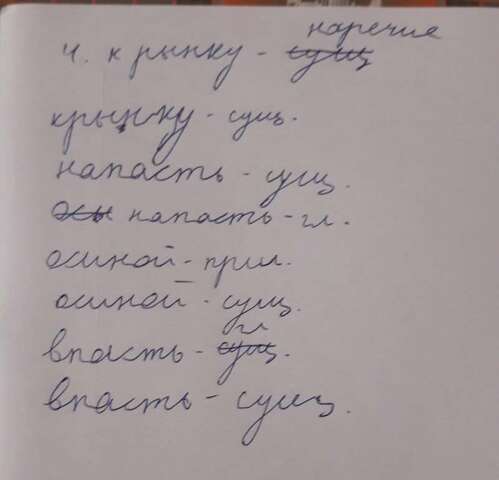 наречие
ч. к рынку - сущ
крынку - сущ.
напасть - ущ.
осы напасть - гл.
осиной - прил.
осиной - сущ.
гл
впасть - сущ.
впасть - сущ.